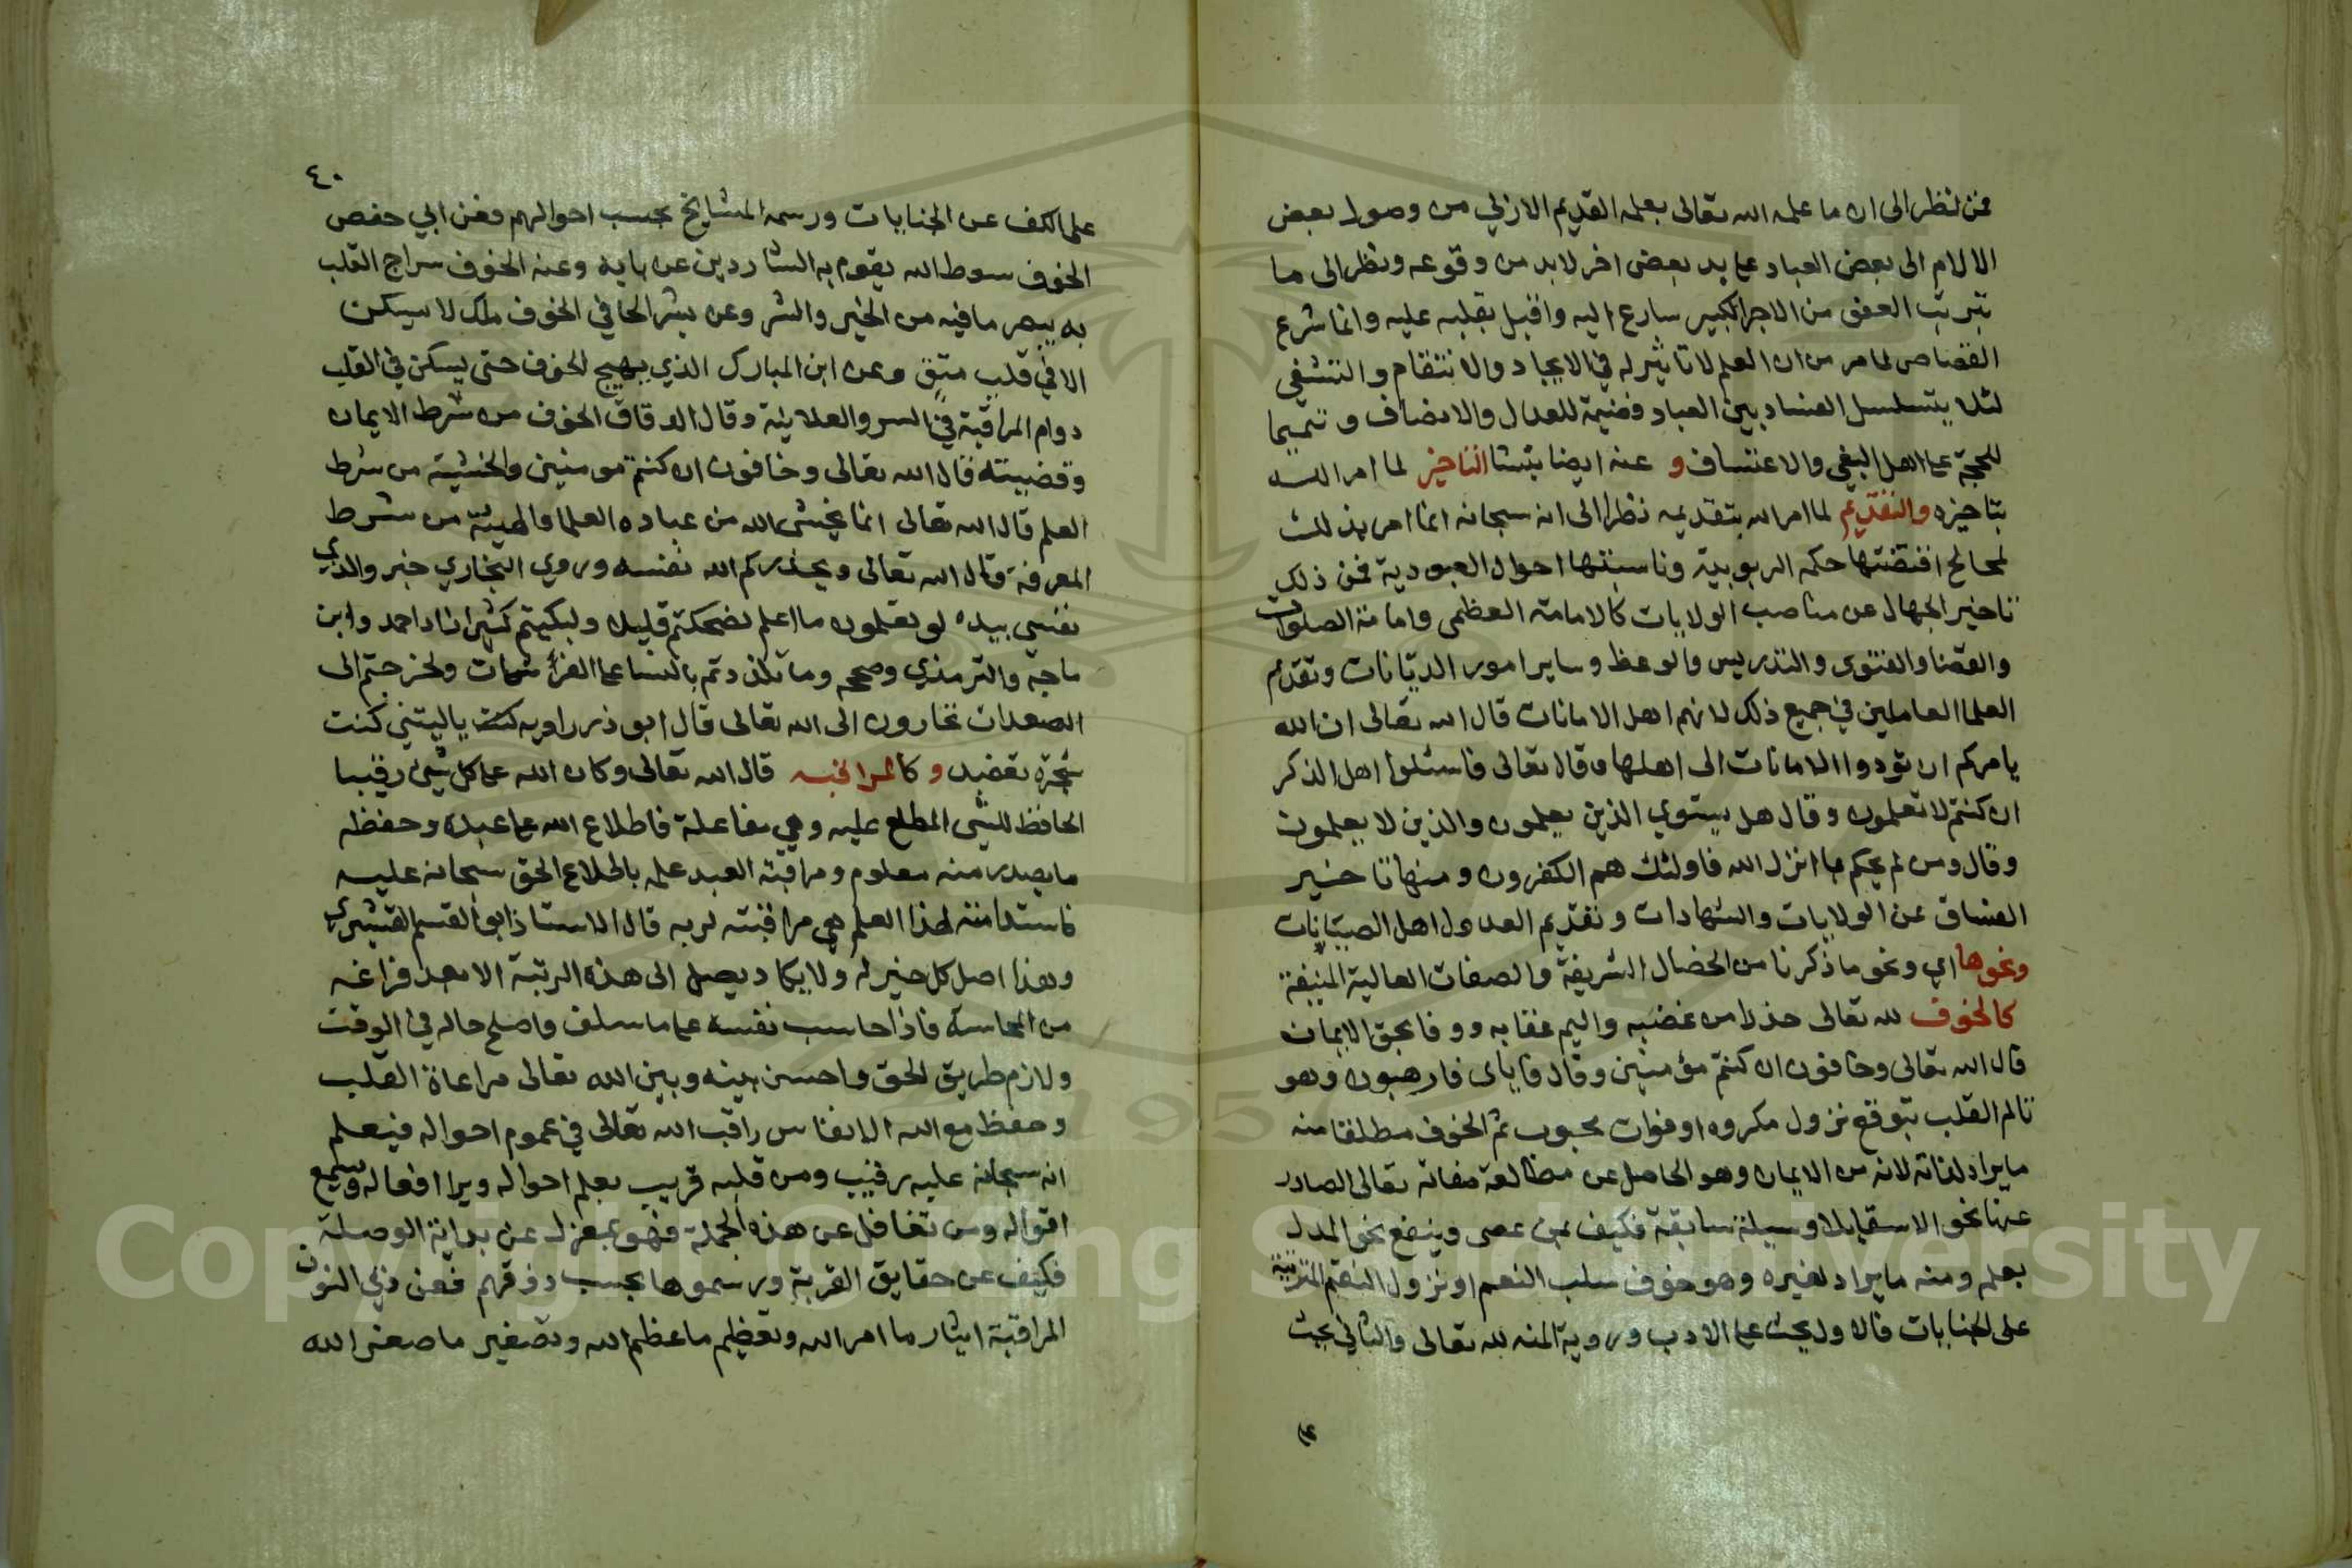 فمن نظر الى ان ما علمه الله تعالى بعلمه القديم الازلي من وصول بعض
الالام الى بعض العباد على يد بعض اخر لابد من وقوعه ونظر الى ما
يترتب العفو من الاجر الكبير سارع اليه واقبل بقلبه عليه وانما شرع
القصاص لما مر من ان العلم لا تاثير له في الايجاد والانتقام والتشفي
لئلا يتسلسل الفساد بين العباد فضيمة للعدل والانصاف وتتميما
للحجة على اهل البغي والاعتساف و عنه ايضا ينشا التاخير لما امر الله
بتاخيره والتقديم لما امر الله بتقديمه نظرا الى انه سبحانه انما امر بذلك
لمصالح اقتضتها حكمه الربوبية وناسبتها احوال العبودية فمن ذلك
تاخير الجهال عن مناصب الولايات كالامامة العظمى وامامة الصلوات
والقضا والفتوى والتدريس والوعظ وساير امور الديانات وتقديم
العلما العاملين في جميع ذلك لانهم اهل الامانات قال الله تعالى ان الله
يامركم ان تودوا الامانات الى اهلها وقال تعالى فاسئلوا اهل الذكر
ان كنتم لا تعلمون وقال هل يستوي الذين يعلمون والذين لا يعلمون
وقال ومن لم يحكم بما انزل الله فاولئك هم الكفرون ومنها تاخير
الفساق عن الولايات والشهادات وتقديم العدول اهل الصيانات
ونحوها اي ونحو ما ذكرنا من الخصال الشريفة والصفات العالية المنيفة
كالخوف لله تعالى حذرا من غضبه واليم عقابه ووفا بحق الايمان
قال الله تعالى وخافون ان كنتم مؤمنين وقال فاياى فارهبون وهو
تالم القلب بتوقع نزول مكروه او فوات محبوب ثم الخوف مطلقا منه
ما يراد لذاته لانه من الايمان وهو الحاصل عن مطالعة صفاته تعالى الصادر
عنها نحو الاسقا بلا وسيلة سابقة فكيف بمن عصى وينفع نحو المدل
بعلم ومنه ما يراد لغيره وهو خوف سلب النعم او نزول النقم المترتبة
على الجنايات فالاول يحث على الادب وروية المنه لله تعالى والثاني يحث
٤٠
على الكف عن الجنايات ورسمه المشايخ بحسب احوالهم فعن ابي حفص
الخوف سوط الله يقوم به الشاردين عن بابه وعنه الخوف سراج القلب
به يبصر ما فيه من الخير والشر وعن بشر الحافي الخوف ملك لا يسكن
الا في قلب متق وعن ابن المبارك الذي يهيج الخوف حتى يسكن في القلب
دوام المراقبة في السر والعلانية وقال الدقاق الخوف من شرط الايمان
وقضيته قال الله تعالى وخافون ان كنتم مومنين والخشية من شرط
العلم قال الله تعالى انما يخشى الله من عباده العلما والهيبة من شرط
المعرفة قال الله تعالى ويحذركم الله نفسه وروي البخاري خبر والذي
نفسي بيده لو تعلمون ما اعلم لضحكتم قليلا ولبكيتم كثيرا زاد احمد وابن
ماجة والترمذي وصححه وما تلذذتم بالنسا على الفرشات ولخرجتم الى
الصعدات تجارون الى الله تعالى قال ابو ذر راويه كنت ياليتني كنت
شجرة تعضد و كالمراقبه قال الله تعالى وكان الله على كل شيئ رقيبا
الحافظ للشي المطلع عليه وهي مفاعلة فاطلاع الله على عبده وحفظه
ما يصدر منه معلوم ومراقبة العبد علمه باطلاع الحق سبحانه عليه
فاستدامته لهذا العلم هي مراقبته لربه قال الاستاذ ابو القسم القشيري
وهذا اصل كل خير له ولا يكاد يصل الى هذه الرتبة الا بعد فراغه
من المحاسبة فاذا حاسب نفسه على ما سلف واصلح حاله في الوقت
ولازم طريق الحق واحسن بينه وبين الله تعالى مراعاة القلب
وحفظ مع الله الانفاس راقب الله تعالى في عموم احواله فيعلم
انه سبحانه عليه رقيب ومن قلبه قريب يعلم احواله ويرا افعاله ويسمع
اقواله ومن تغافل عن هذه الجملة فهو بمعزل عن بداية الوصلة
فكيف عن حقايق القربة ورسموها بحسب ذوقهم فعن ذي النون
المراقبة ايثار ما امر الله وتعظيم ما عظم الله وتصغير ما صغر الله
Copyright © King Saud University
1957